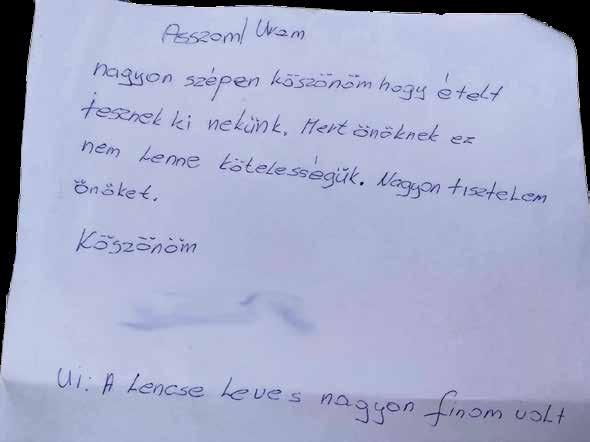 Asszom/ Uram
nagyon szépen köszönöm hogy ételt
tesznek ki nekünk. Mert önöknek ez
nem lenne kötelességük. Nagyon tisztelem
önöket.
Köszönöm
Ui: A Lencse Leves nagyon finom volt